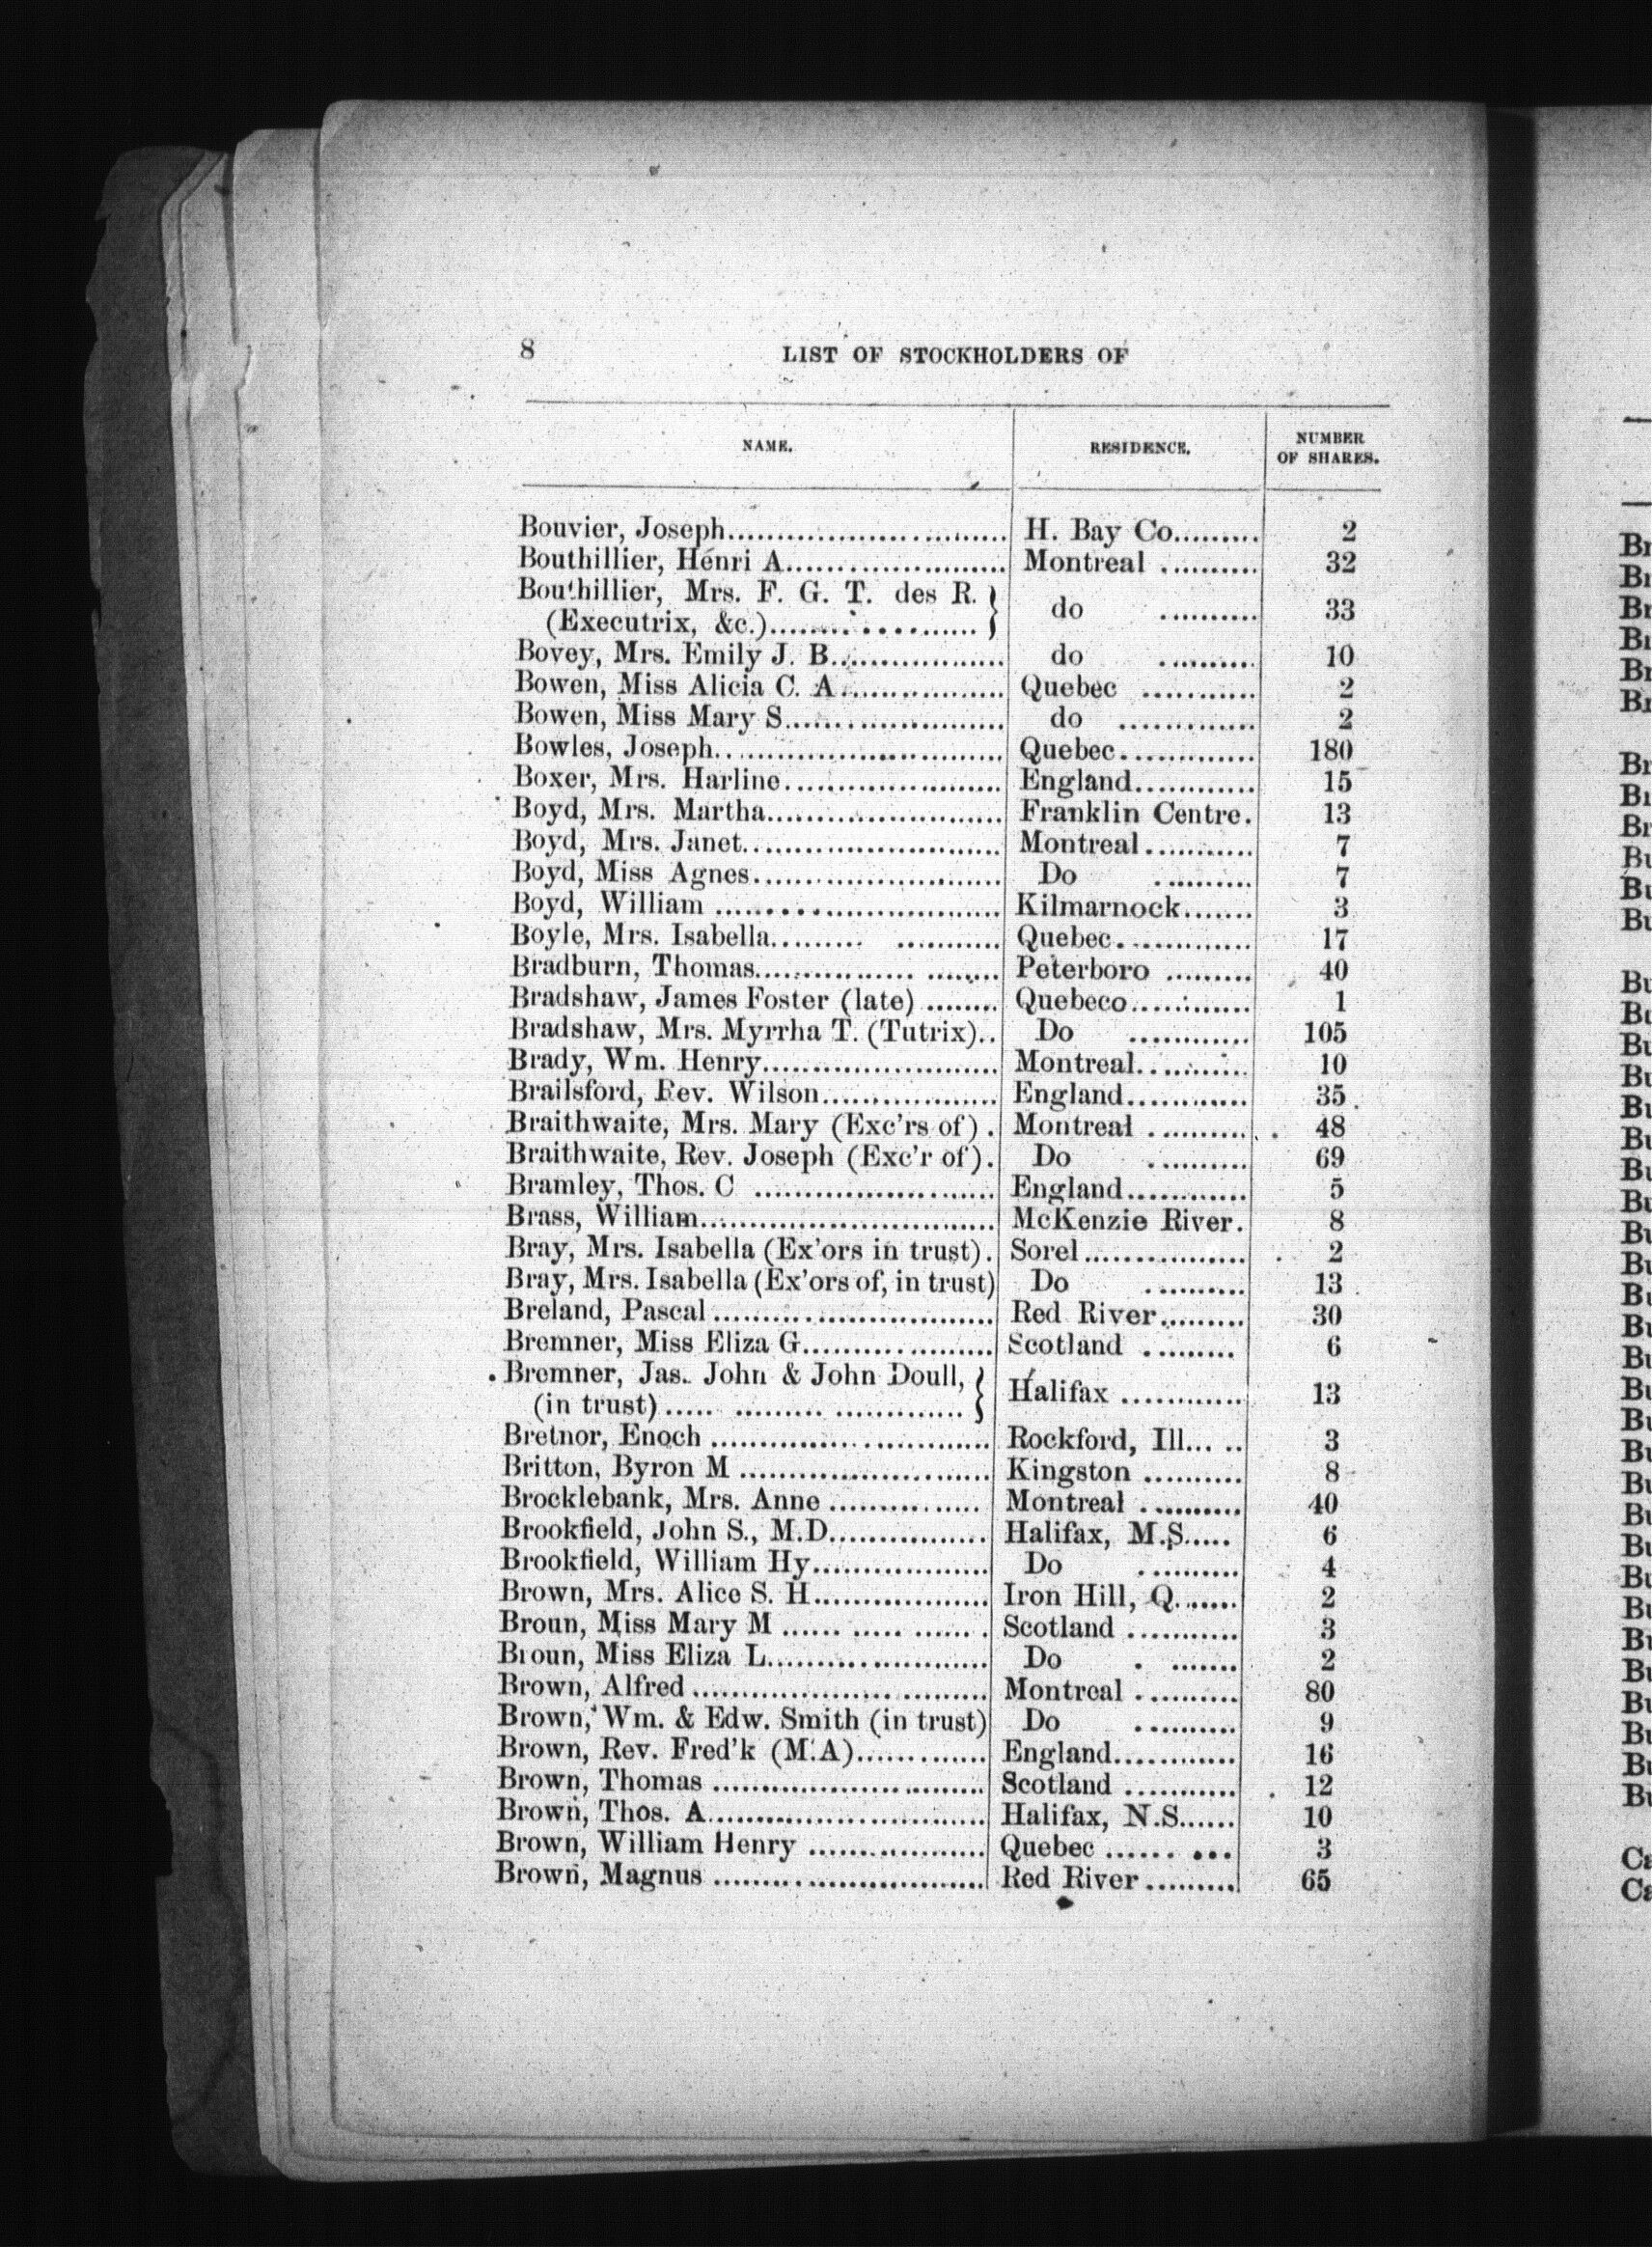 8 LIST OF STOCKHOLDERS OF
NAME. RESIDENCE. NUMBER OF SHARES.
Bouvier, Joseph............................ H. Bay Co......... 2
Bouthillier, Henri A...................... Montreal .......... 32
Bouthillier, Mrs. F. G. T. des R. }
(Executrix, &c.)..................... } do .......... 33
Bovey, Mrs. Emily J. B.................. do .......... 10
Bowen, Miss Alicia C. A................. Quebec ............ 2
Bowen, Miss Mary S...................... do .............. 2
Bowles, Joseph............................. Quebec.............. 180
Boxer, Mrs. Harline...................... England............ 15
Boyd, Mrs. Martha........................ Franklin Centre. 13
Boyd, Mrs. Janet.......................... Montreal........... 7
Boyd, Miss Agnes......................... Do .......... 7
Boyd, William ............................. Kilmarnock....... 3
Boyle, Mrs. Isabella......... ........... Quebec.............. 17
Bradburn, Thomas................ ........ Peterboro ......... 40
Bradshaw, James Foster (late) ........ Quebeco............ 1
Bradshaw, Mrs. Myrrha T. (Tutrix).. Do ............ 105
Brady, Wm. Henry........................ Montreal........... 10
Brailsford, Rev. Wilson.................. England............ 35
Braithwaite, Mrs. Mary (Exc'rs of) . Montreal .......... 48
Braithwaite, Rev. Joseph (Exc'r of). Do .......... 69
Bramley, Thos. C ........................ England............ 5
Brass, William.............................. McKenzie River. 8
Bray, Mrs. Isabella (Ex'ors in trust). Sorel................ 2
Bray, Mrs. Isabella (Ex'ors of, in trust) Do .......... 13
Breland, Pascal ............................ Red River......... 30
Bremner, Miss Eliza G................... Scotland ......... 6
Bremner, Jas. John & John Doull, }
(in trust)..... ......... ............. } Halifax ............ 13
Bretnor, Enoch ............................ Rockford, Ill... .. 3
Britton, Byron M ......................... Kingston .......... 8
Brocklebank, Mrs. Anne ............... Montreal .......... 40
Brookfield, John S., M.D................ Halifax, M.S..... 6
Brookfield, William Hy.................. Do .......... 4
Brown, Mrs. Alice S. H.................. Iron Hill, Q....... 2
Broun, Miss Mary M ...... ..... ...... . Scotland ........... 3
Broun, Miss Eliza L...................... Do . ....... 2
Brown, Alfred .................... ......... Montreal .......... 80
Brown, Wm. & Edw. Smith (in trust) Do .......... 9
Brown, Rev. Fred'k (M.A)............. England............ 16
Brown, Thomas ........................... Scotland ........... 12
Brown, Thos. A............................ Halifax, N.S...... 10
Brown, William Henry .................. Quebec ...... ... 3
Brown, Magnus ........................... Red River......... 65